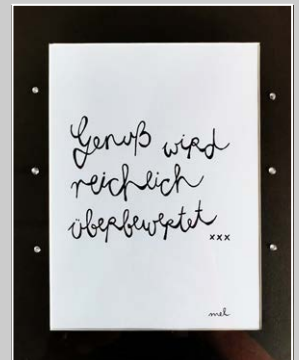 Genuß wird
reichlich
überbewertet
xxx
mel